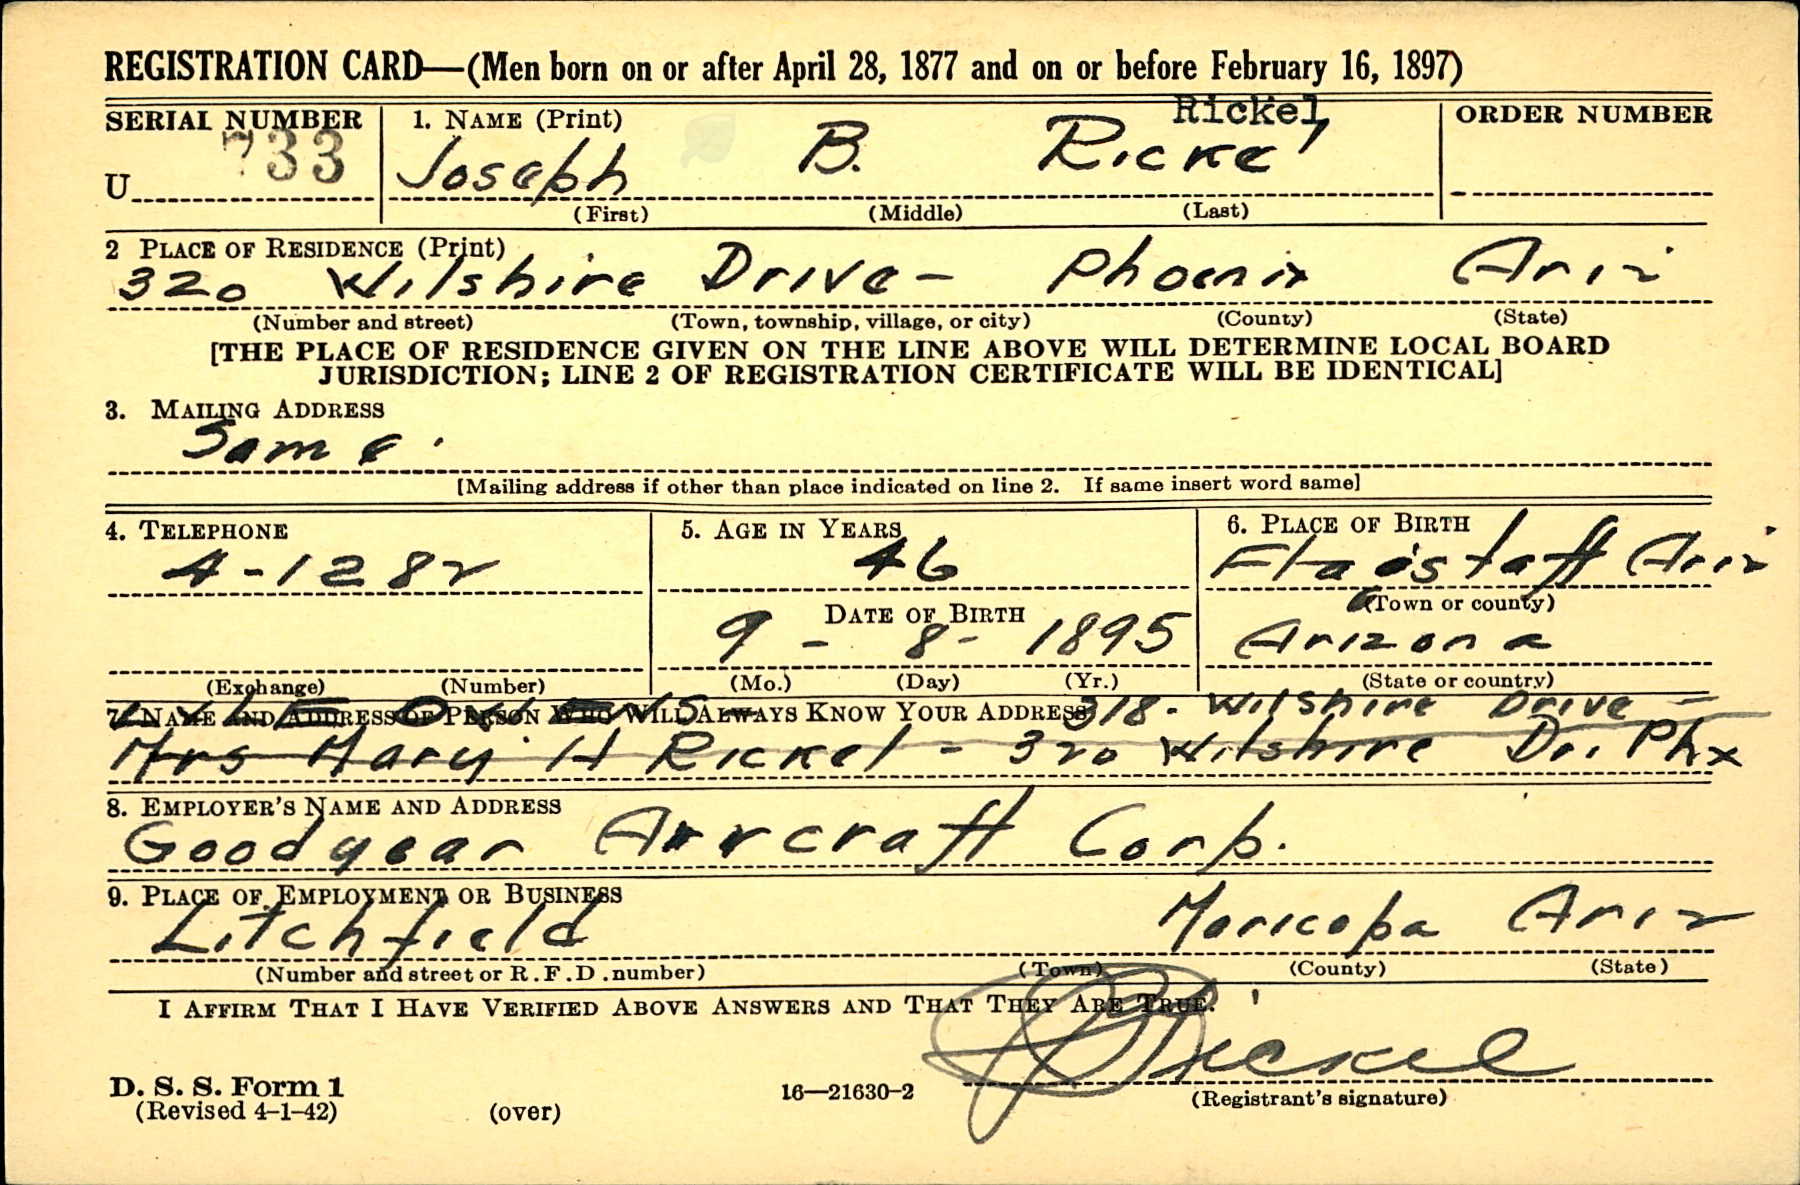 REGISTRATION CARD—(Men born on or after April 28, 1877 and on or before February 16, 1897)
SERIAL NUMBER
U 733
1. NAME (Print)
Rickel
Joseph B. Rickel
(First) (Middle) (Last)
ORDER NUMBER
2 PLACE OF RESIDENCE (Print)
320 Wilshire Drive - Phoenix Ariz
(Number and street) (Town, township, village, or city) (County) (State)
[THE PLACE OF RESIDENCE GIVEN ON THE LINE ABOVE WILL DETERMINE LOCAL BOARD
JURISDICTION; LINE 2 OF REGISTRATION CERTIFICATE WILL BE IDENTICAL]
3. MAILING ADDRESS
Same.
[Mailing address if other than place indicated on line 2. If same insert word same]
4. TELEPHONE
4-1282
(Exchange) (Number)
5. AGE IN YEARS
46
DATE OF BIRTH
9 - 8 - 1895
(Mo.) (Day) (Yr.)
6. PLACE OF BIRTH
Flagstaff Ariz
(Town or county)
Arizona
(State or country)
7. NAME AND ADDRESS OF PERSON WHO WILL ALWAYS KNOW YOUR ADDRESS
LYLE OWENS - 318 - Wilshire Drive -
Mrs Mary H Rickel - 320 Wilshire Dr. Phx
8. EMPLOYER'S NAME AND ADDRESS
Goodyear Aircraft Corp.
9. PLACE OF EMPLOYMENT OR BUSINESS
Litchfield Maricopa Ariz
(Number and street or R.F.D. number) (Town) (County) (State)
I AFFIRM THAT I HAVE VERIFIED ABOVE ANSWERS AND THAT THEY ARE TRUE.
JB Rickel
(Registrant's signature)
D. S. S. Form 1
(Revised 4-1-42) (over) 16—21630-2